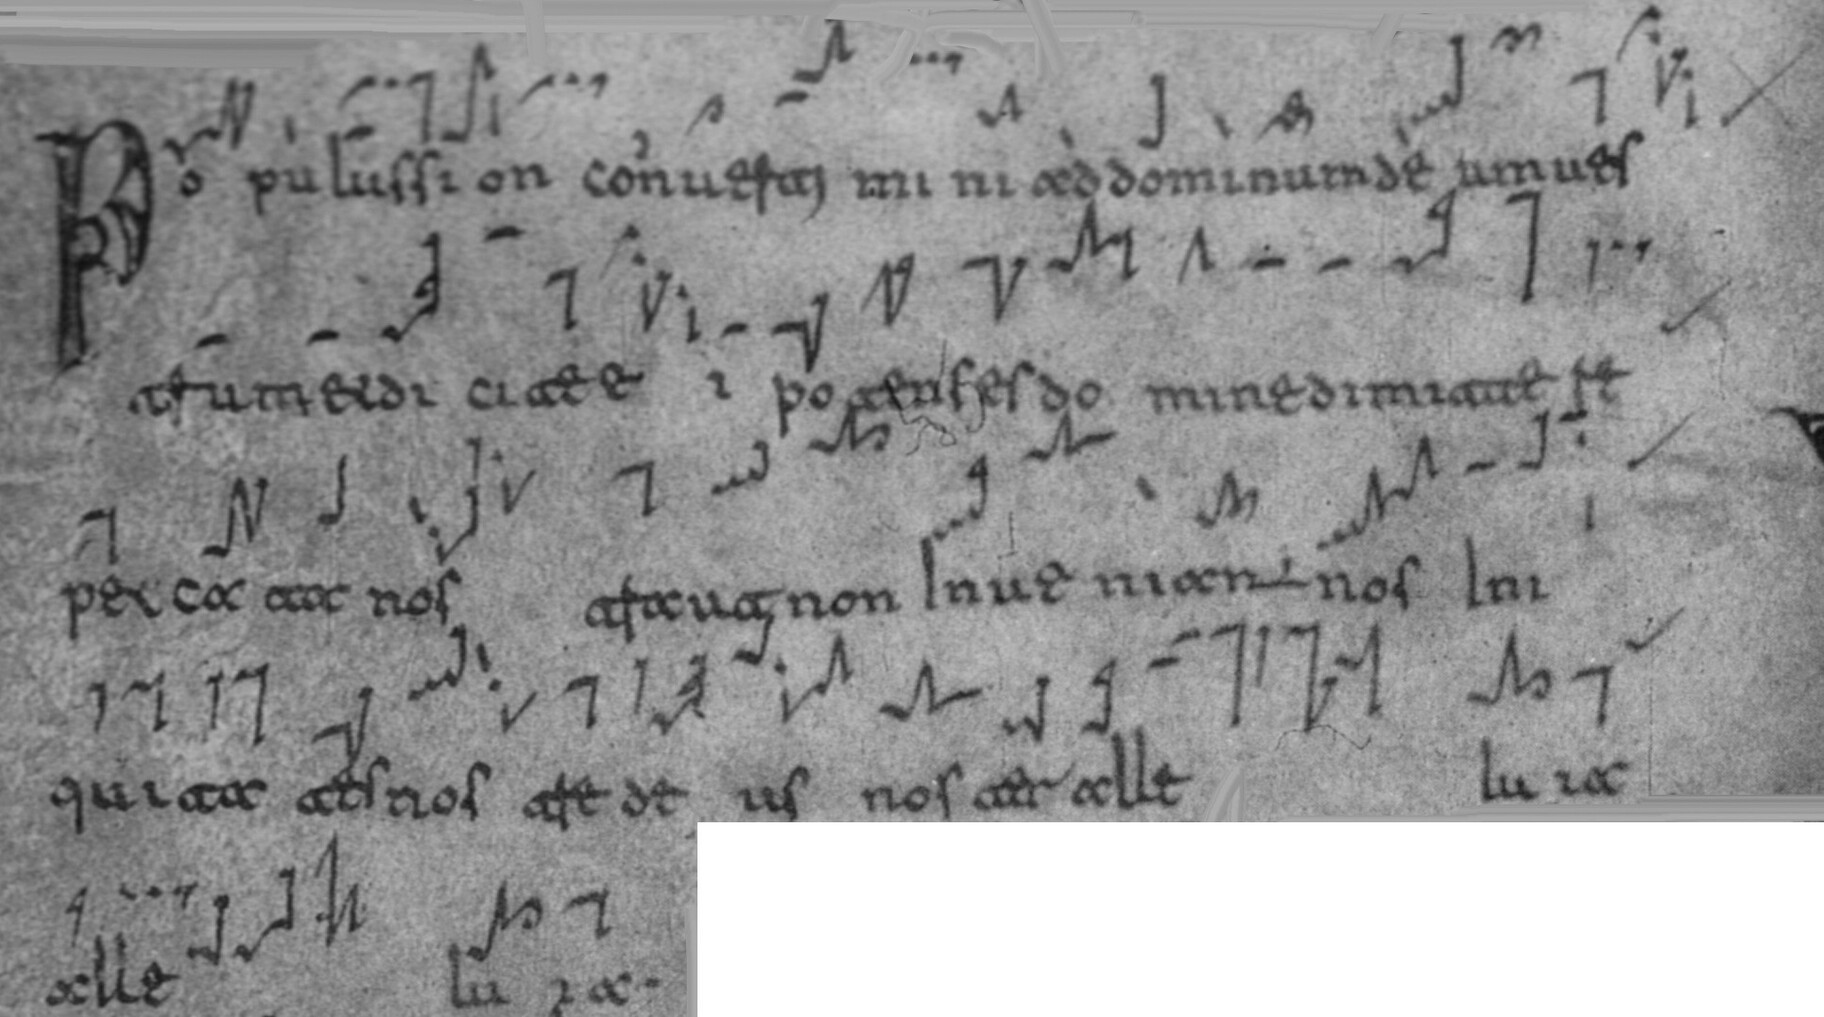 Po pulussi on conuerti mi ni ad dominum de umues
trum et di cite e i potens es do mine dimitte re
pecca ta nos tra ut non Inue niant nos Ini
quita tes nos tre de us nos ter alle lu ia
alle lu ia